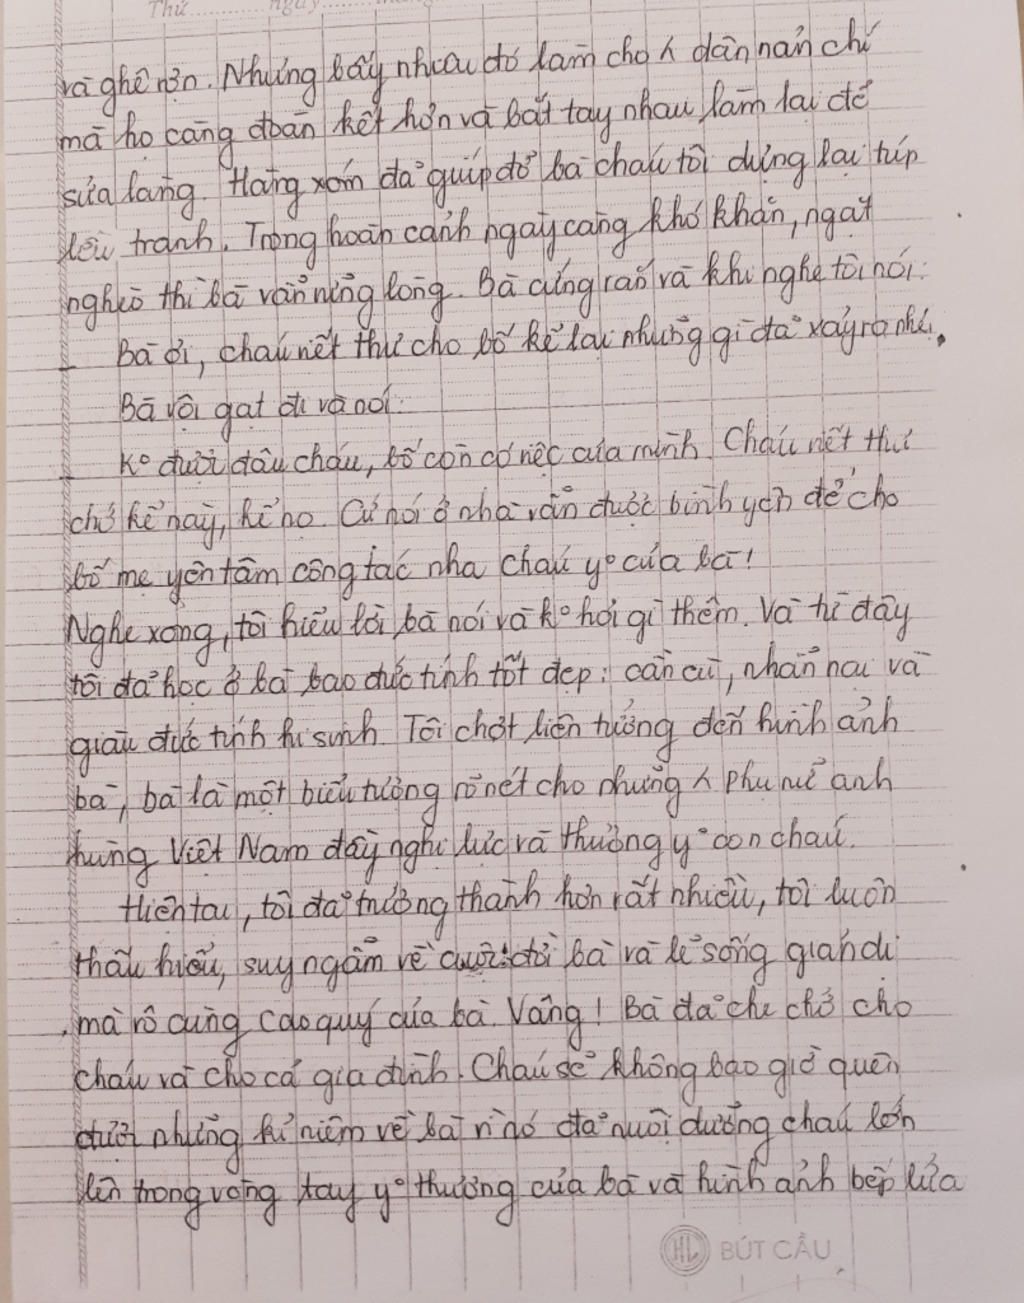 Thứ ngày
và ghê rợn. Nhưng bấy nhiêu đó làm cho ʌ dân nản chí
mà họ càng đoàn kết hơn và bắt tay nhau làm lại để
sửa làng. Hàng xóm đã giúp đỡ bà cháu tôi dựng lại túp
lều tranh. Trong hoàn cảnh ngày càng khó khăn, ngặt
nghèo thì bà vẫn nững lòng. Bà cứng rắn và khi nghe tôi nói:
- Bà ơi, cháu nết thư cho bố kể lại những gì đã xảy ra nhé.
Bà vội gạt đi và nói:
- Ko được đâu cháu, bố còn có nệc của mình. Cháu nết thư
chớ kể này, kể nọ. Cứ nói ở nhà vẫn được bình yên để cho
bố mẹ yên tâm công tác nha cháu yo của bà!
Nghe xong, tôi hiểu lời bà nói và ko hỏi gì thêm. Và từ đây
tôi đã học ở bà bao đức tính tốt đẹp: cần cù, nhẫn nại và
giàu đức tính hi sinh. Tôi chợt liên tưởng đến hình ảnh
bà, bà là một biểu tượng rõ nét cho những ʌ phụ nữ anh
hùng Việt Nam đầy nghị lực và thương yo con cháu.
Hiện tại, tôi đã trưởng thành hơn rất nhiều, tôi luôn
thấu hiểu, suy ngẫm về cuộc đời bà và lẽ sống giản dị
mà vô cùng cao quý của bà. Vâng! Bà đã che chở cho
cháu và cho cả gia đình. Cháu sẽ không bao giờ quên
được những kỉ niệm về bà nì nó đã nuôi dưỡng cháu lớn
lên trong vòng tay yo thương của bà và hình ảnh bếp lửa
HL BÚT CẦU